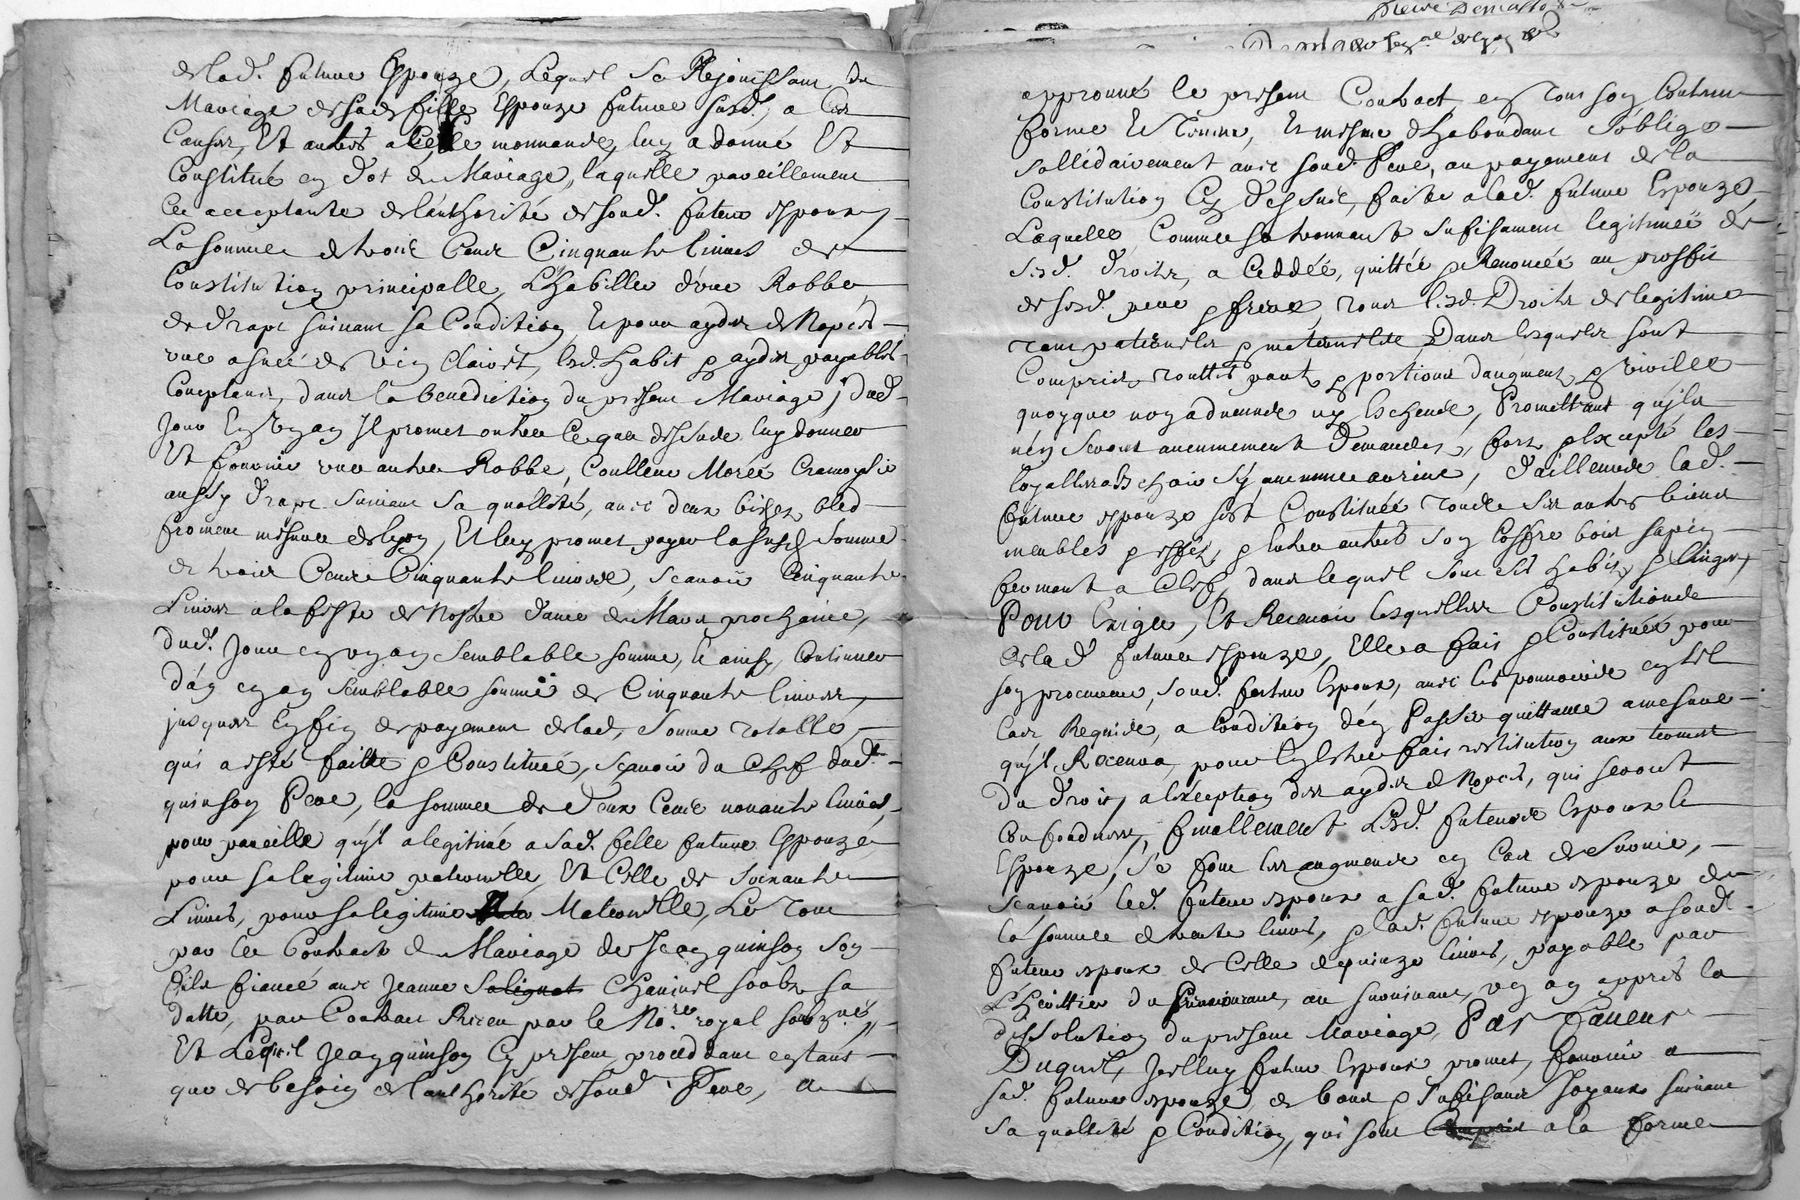 de lad. future Espouze, Lequel se Rejouissant du
Mariage de sad. fille Espouze future susd. a Ces
Causes, Et autres a Celle mouvande, luy a donné Et
Constitué en dot de Mariage, laquelle pareillement
Ce acceptante de l'authorité de soud. futeur espoux,
La somme de trois Cent Cinquante livres de
Constitution principalle, L'habiller d'une Robbe,
de drapt suivant sa Condition, Et pour ayder de Nopces
une asnée de vin Clairet, lesd. habit et aydes payables
Comptant, dans la benediction du present Mariage; dud.
Jour En Un an Il promet outre Ce que dessude luy donner
Et fournir une autre Robbe, Coulleur Morée Cramoysie
aussy drapt suivant sa quallité, avec deux bichets bled
froment mesure de lyon, Et luy promet payer la susd. somme
de trois Cent Cinquante livres, scavoir Cinquante
Livres a la feste de Nostre dame de Mars prochaine,
dud. Jour en un an semblable somme, et ainsy Continuer
d'an en an semblable somme de Cinquante livres,
jusques En fin de payement de lad. somme totalle
qui a esté faitte et Constituée, scavoir du Chef dud.
quinson Pere, la somme de deux Cent nonante livres,
pour pareille qu'il a legitimé a sad. fille future Espouze
pour sa legitime paternelle, Et Celle de soixante
Livres, pour sa legitime Maternelle, Le Tout
par le Contract de Mariage de Jean quinson son
fils fiancé avec Jeanne Salignat Chavinel soubz sa
datte, par Contract Receu par le No.re royal soubz.né,
Et Lequel Jean quinson Cy present, proceddant en tant
que de besoin de l'authorité de soud. Pere, a
approuvé le present Contract en Tout son Contenu
forme Et Teneur, Et mesme d'habondant s'oblige
sollidairement avec soud. Pere, au payement de la
Constitution Cy Dessus, faite a lad. future Espouze,
Laquelle Comme se trouvant sufisament legitimée de
sesd. droits, a Ceddée, quittée et Renoncée au proffit
de sesd. pere et frere tous lesd. Droits de legitime
tant paternelle et maternelle Dans lesquels sont
Compris touttes parts et portions d'augment et viville
quoyque non advenude ny Escheude, Promettant qu'ils
n'en seront aucunement demandés, fors et Excepté les
loyalles Eschoir s'y aucunne avine, d'ailleurs lad.
future espouze s'est Constituée toude ses autres biens
meubles et effets, et Entre autres son Coffre bois sapin
fermant a Clef, dans lequel sont ses habits et linges,
Pour Exiger, Et Recevoir lesquelles Constitutions
de lad. future espouze, Elle a fait et Constitué pour
son procureur, soud. futeur Espoux, avec les pouvoirs en tel
Cas Requide, a Condition d'en Passer quittance a mesure
qu'il Recevra, pour luy Estre fait restitution aux termes
du droit, a l'exception des aydes de Nopces, qui seront
Confondues, finallement Lesd. futeurs Espoux et
Espouze, se font les augments en Cas de survie,
scavoir led. futeur espoux a sad. future espouze de
la somme de trente livres, et lad. future espouze a soud.
futeur espoux de Celle de quinze livres, payable par
L'heritier du Premourant, au survivant, un an appres la
dissolution du present Mariage, Pas Faveur
Duquel, Icelluy futeur Espoux promet, fournir a
sad. future espouze, de bons et sufisants Joyaux suivant
sa quallité et Condition, qui sont Compris a la forme